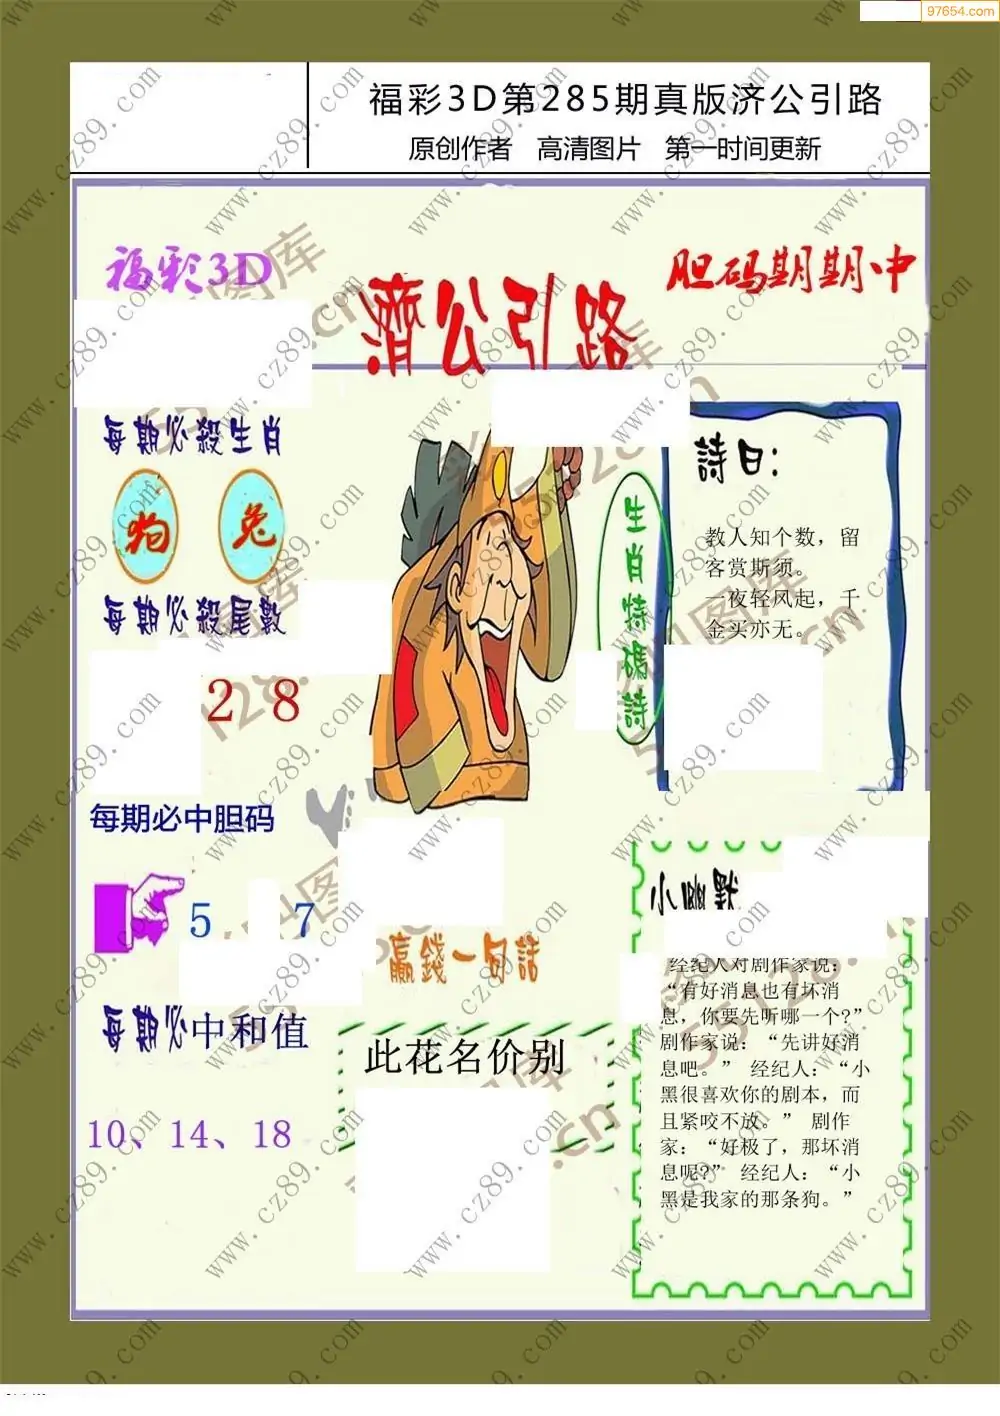 97654.com
福彩3D第285期真版济公引路
原创作者 高清图片 第一时间更新
福彩3D
胆码期期中
濟公引路
每期必殺生肖
狗 兔
每期必殺尾數
2 8
每期必中胆码
5 7
每期必中和值
10、14、18
生肖特碼詩
詩曰:
教人知个数，留
客赏斯须。
一夜轻风起，千
金买亦无。
赢錢一句話
此花名价别
小幽默
经纪人对剧作家说：
“有好消息也有坏消
息，你要先听哪一个?”
剧作家说：“先讲好消
息吧。” 经纪人：“小
黑很喜欢你的剧本，而
且紧咬不放。” 剧作
家：“好极了，那坏消
息呢?” 经纪人：“小
黑是我家的那条狗。”
www.cz89.com